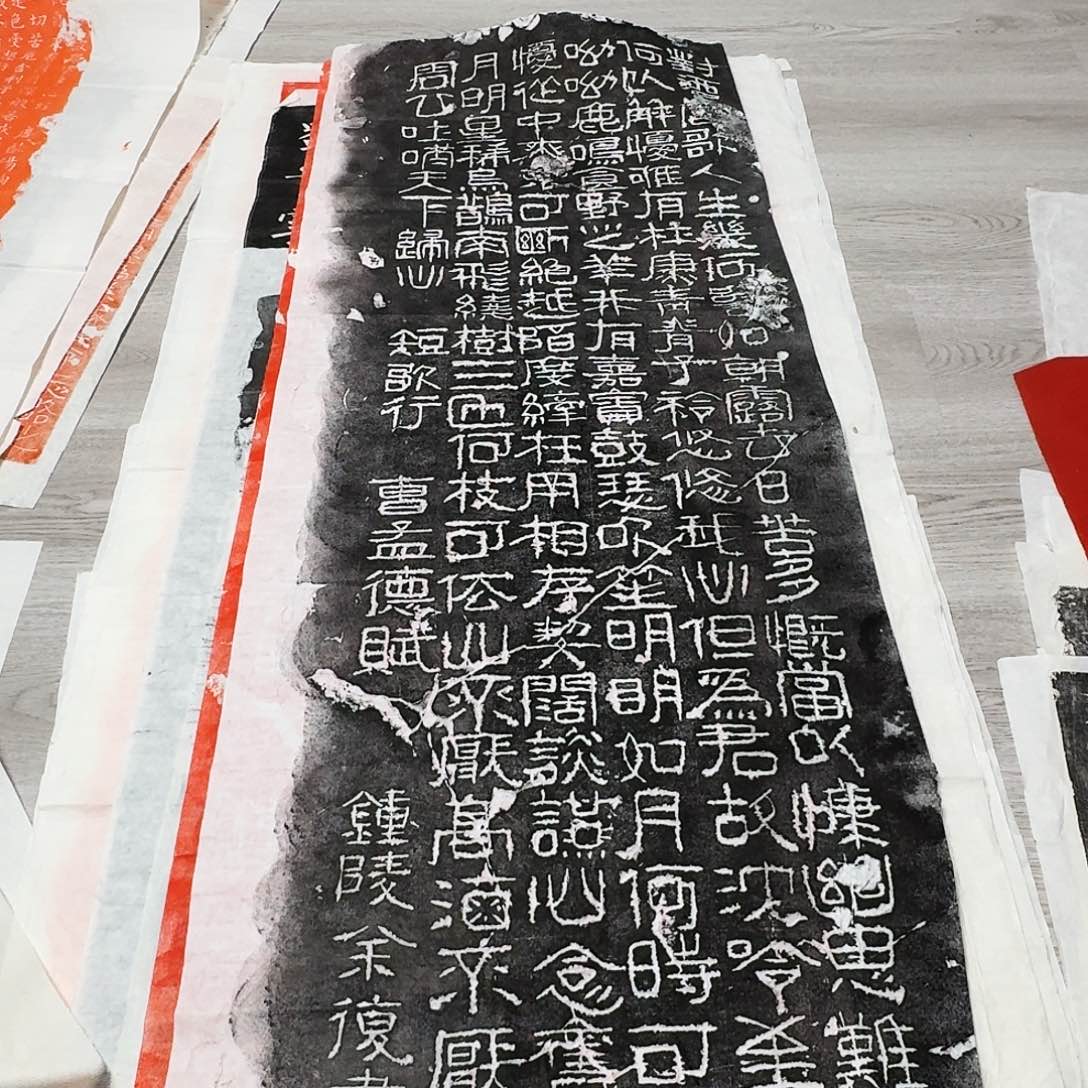 對酒當歌人生幾何譬如朝露去日苦多慨當以慷幽思難
何以解憂唯有杜康青青子衿悠悠我心但爲君故沈吟至
呦呦鹿鳴食野之苹我有嘉賓鼓瑟吹笙明明如月何時可
憂從中來不可斷絕越陌度阡枉用相存契闊談讌心念舊
月明星稀烏鵲南飛繞樹三匝何枝可依山不厭高海不厭
周公吐哺天下歸心 短歌行 曹孟德賦 鍾陵 余復